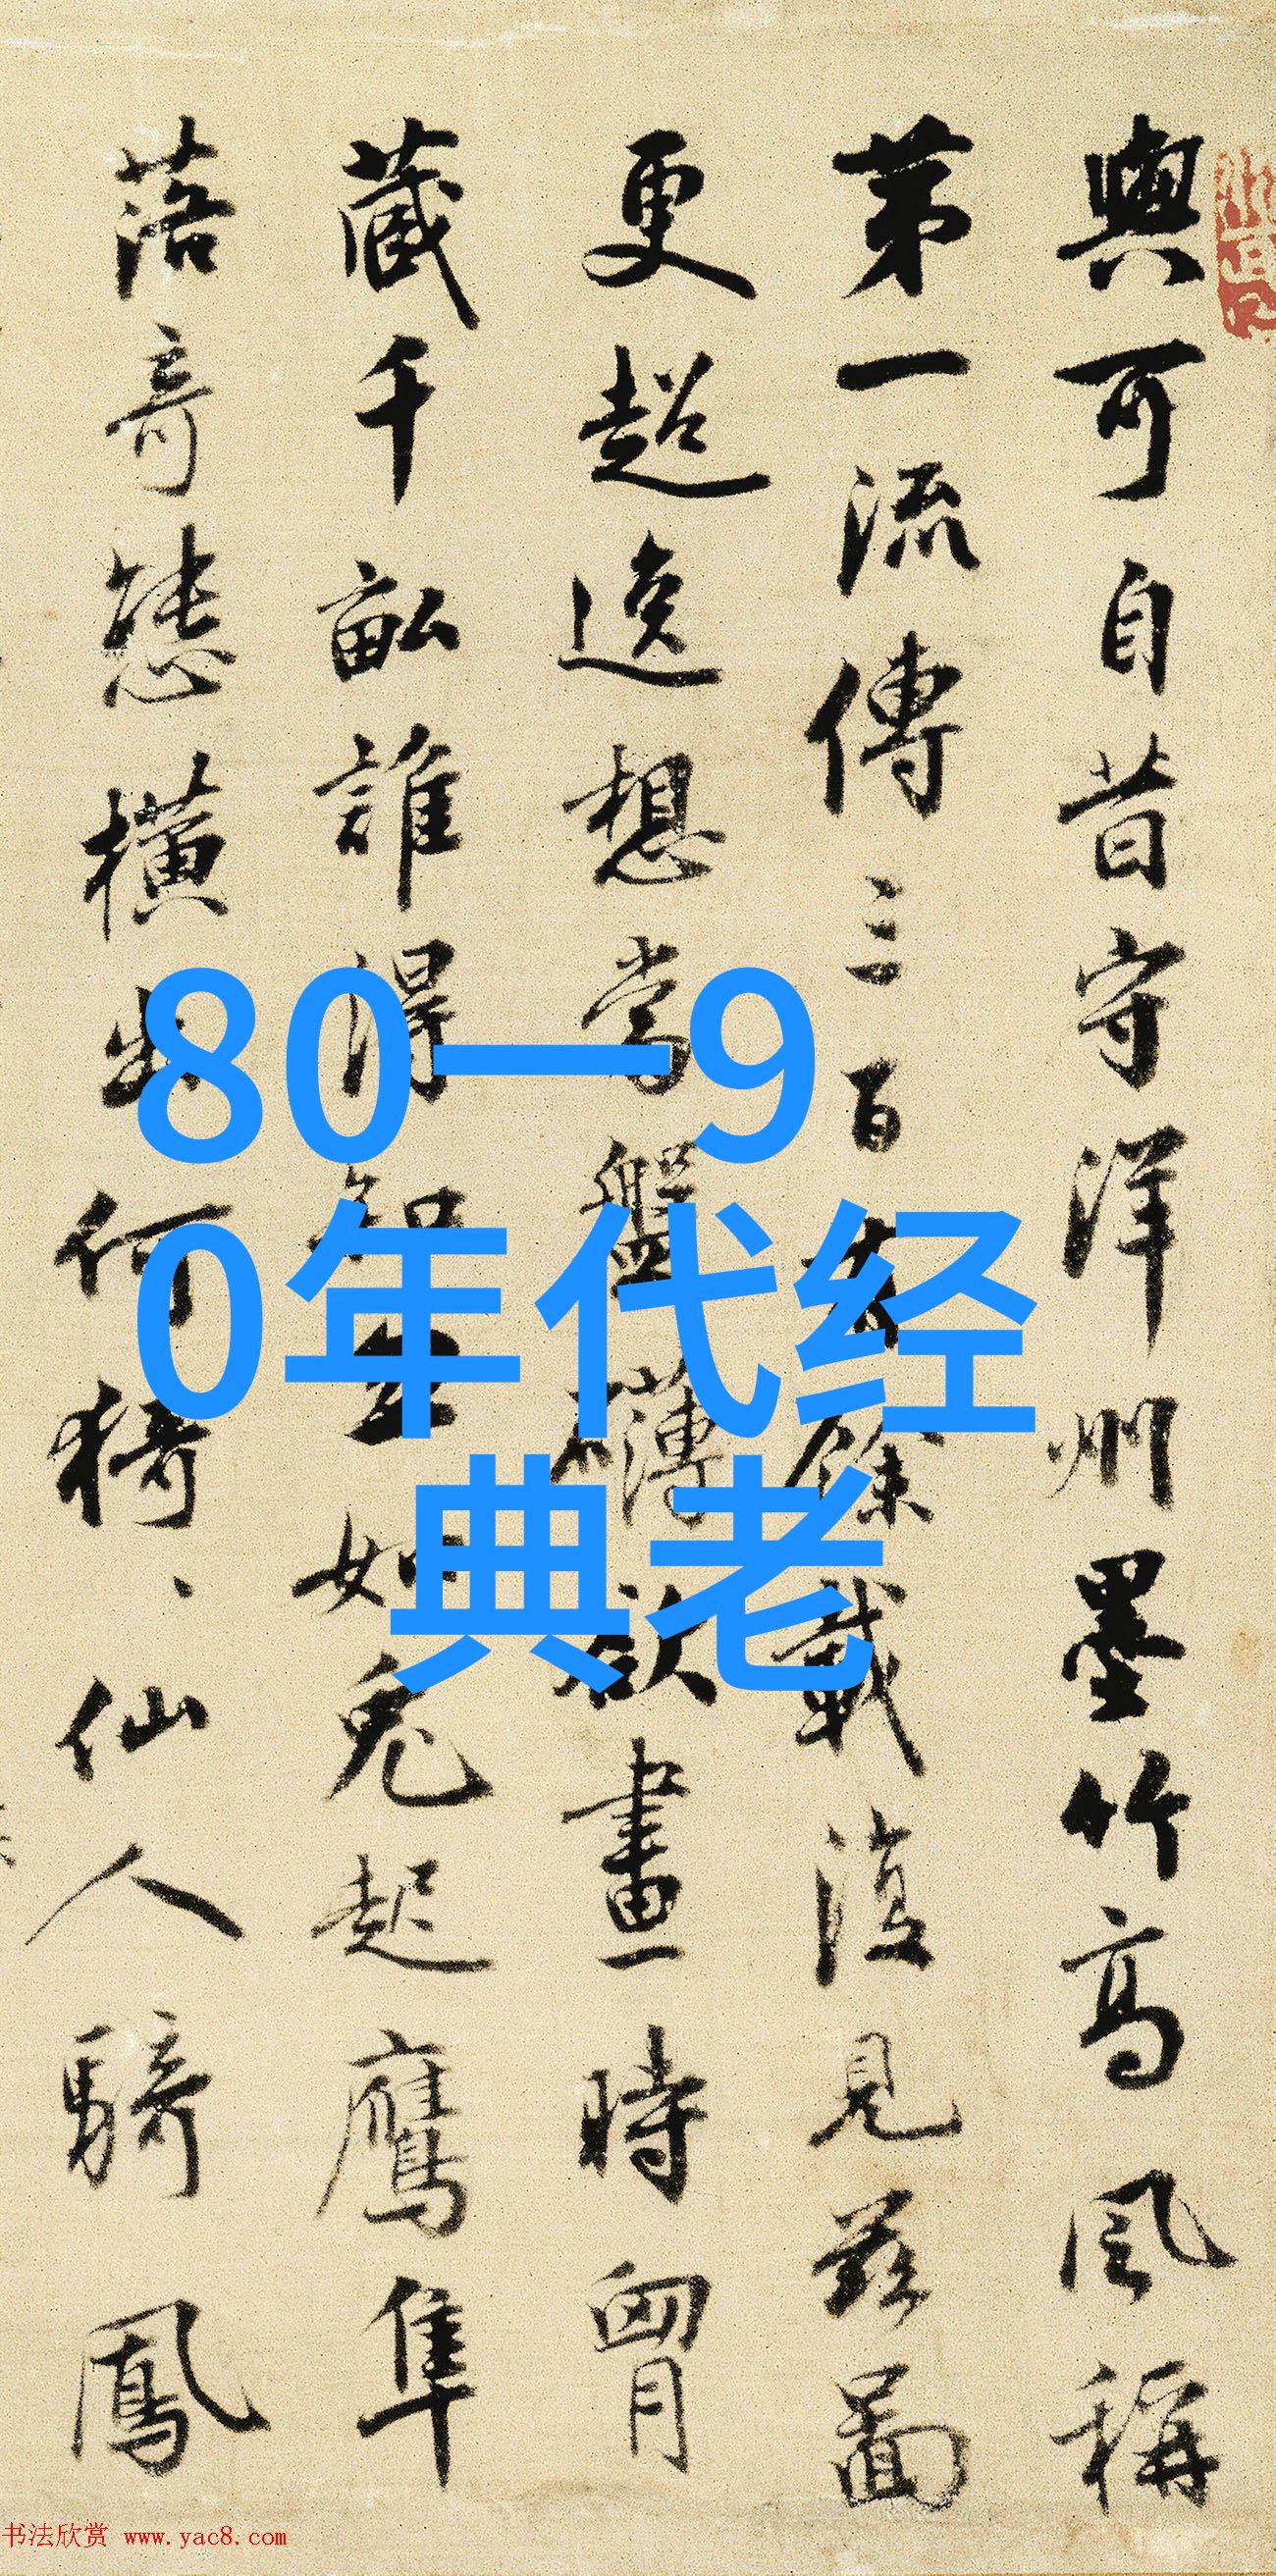 與可自昔守洋州墨竹高風稱
第一流傳三百有餘載復見茲圖
更超逸想當盤礴欲畫時胷
藏千畝誰得如兔起鷹隼
落奇態橫出何猗猗仙人騎鳳
80一9
0年代经
典老
书法欣赏 www.yac8.com